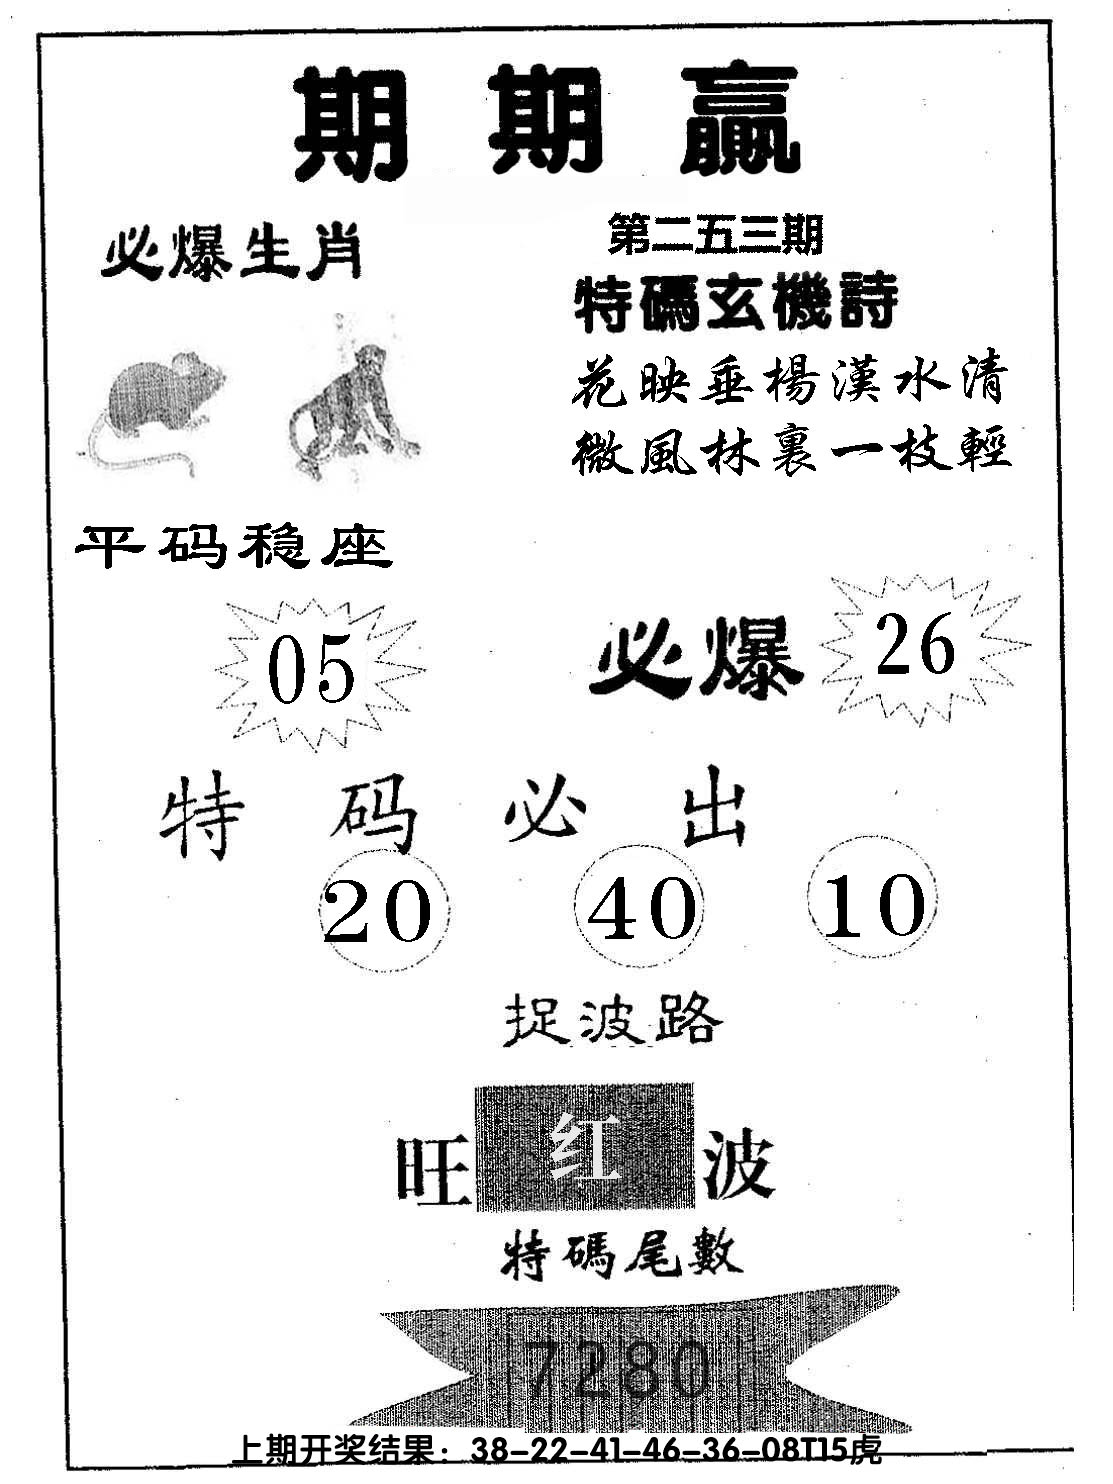 期期贏
必爆生肖
第二五三期
特碼玄機詩
花映垂楊漢水清
微風林裏一枝輕
平码稳座
05
必爆 26
特码必出
20 40 10
捉波路
旺红波
特碼尾數
7280
上期开奖结果：38-22-41-46-36-08T15虎